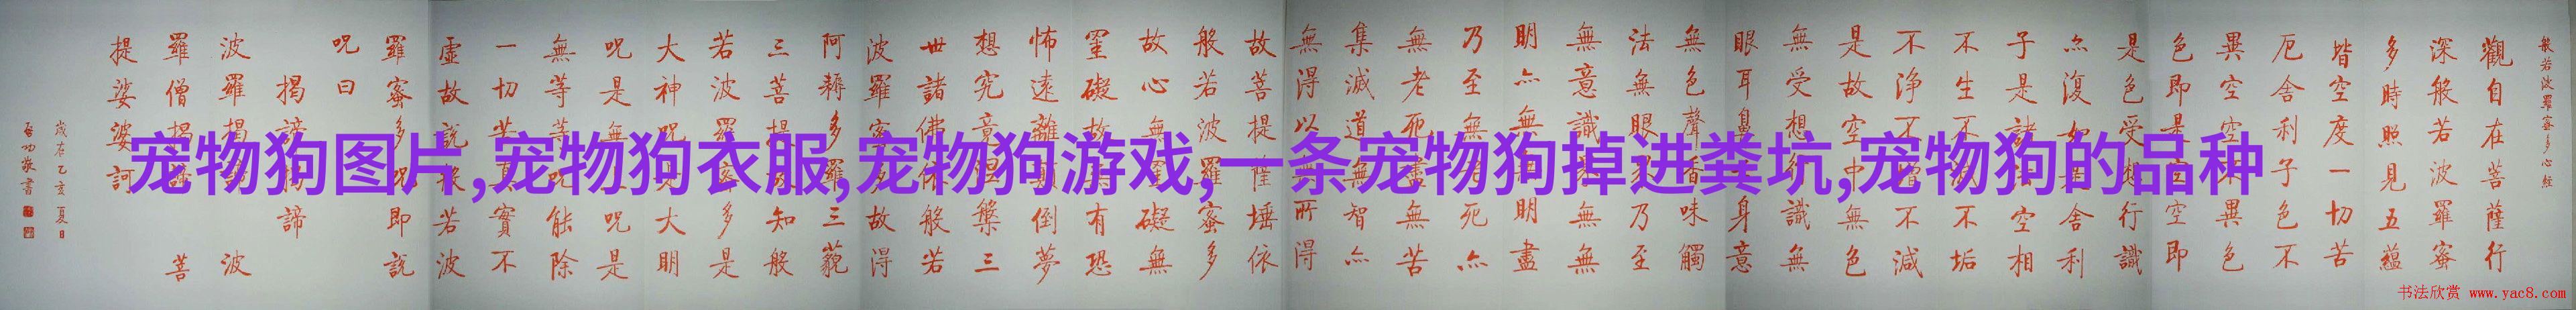 般若波羅蜜多心經
觀自在菩薩行
深般若波羅蜜
多時照見五蘊
皆空度一切苦
厄舍利子色不
異空空不異色
色即是空空即
是色受想行識
亦復如是舍利
子是諸法空相
不生不滅不垢
不淨不增不減
是故空中無色
無受想行識無
眼耳鼻舌身意
無色聲香味觸
法無眼界乃至
無意識界無無
明亦無無明盡
乃至無老死亦
無老死盡無苦
集滅道無智亦
無得以無所得
故菩提薩埵依
般若波羅蜜多
故心無罣礙無
罣礙故無有恐
怖遠離顛倒夢
想究竟涅槃三
世諸佛依般若
波羅蜜多故得
阿耨多羅三藐
三菩提故知般
若波羅蜜多是
大神咒是大明
咒是無上咒是
無等等咒能除
一切苦真實不
虛故說般若波
羅蜜多咒即說
咒曰
揭諦揭諦
波羅揭諦 波
羅僧揭諦 菩
提娑婆訶
歲在乙亥夏日
啓功敬書
宠物狗图片,宠物狗衣服,宠物狗游戏,一条宠物狗掉进粪坑,宠物狗的品种
书法欣赏 www.yac8.com